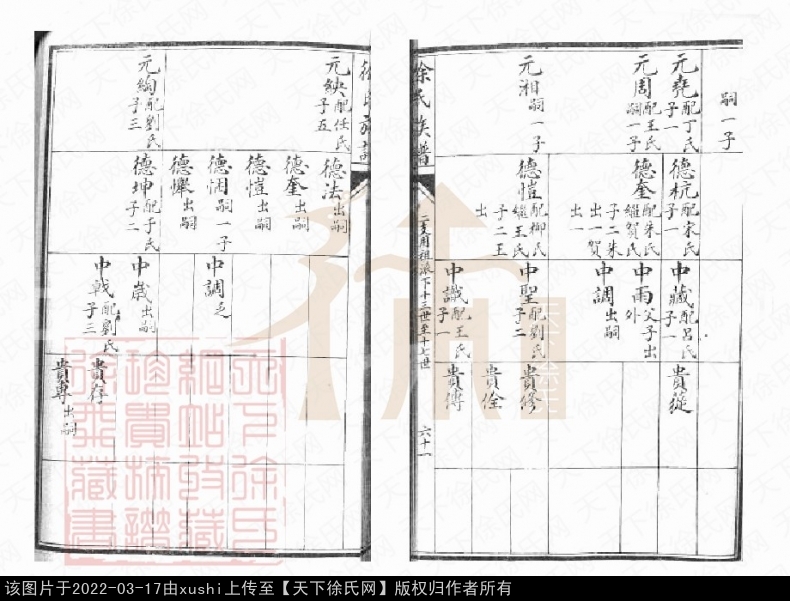 嗣一子
元堯配丁氏
子一
元周配王氏
嗣一子
元湘嗣一子
德杭配宋氏
子一
德奎配朱氏
繼賀氏
子二朱
出一賀
出一
德愷配柳氏
繼王氏
子二王
出
中藏配呂氏
子一
中雨父子出
外
中調出嗣
中聖配劉氏
子二
中識配王氏
子一
貴蓰
貴修
貴佺
貴傳
徐氏族譜
二支用祖派下十三世至十七世
六十一
元缺配任氏
子五
元絢配劉氏
子三
德法出嗣
德奎出嗣
德愷出嗣
德悃嗣一子
德懋出嗣
德坤配于氏
子二
中調乏
中歲出嗣
中戟配劉氏
子三
貴存
貴專出嗣
天下徐氏网
该图片于2022-03-17由xushi上传至【天下徐氏网】版权归作者所有